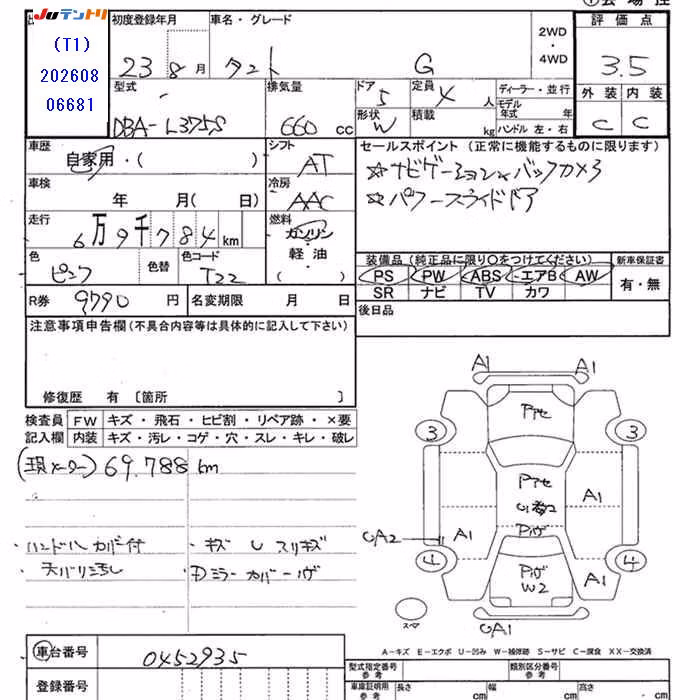 Juテントリ
(T1)
202608
06681
初度登録年月
23 8 月
車名・グレード
タント G
2WD
・
4WD
評価点
3.5
外装 内装
C C
型式
DBA-L375S
排気量
660 cc
ドア
5
定員
4 人
形状
W
積載
kg
ディーラー・並行
モデル年式 年
ハンドル 左・右
車歴
自家用・( )
シフト
AT
セールスポイント (正常に機能するものに限ります)
☆ナビゲーション☆バックカメラ
☆パワースライドドア
車検
年 月( 日)
冷房
AAC
走行
6万9千784km
燃料
ガソリン
軽・油
( )
色
ピンク
色替
色コード
T22
装備品 (純正品に限り○をつけてください)
PS PW ABS エアB AW
SR ナビ TV カワ
新車保証書
有・無
R券 9790 円
名変期限 月 日
後日品
注意事項申告欄(不具合内容等は具体的に記入して下さい)
修復歴 有〔箇所 〕
検査員
記入欄
FW キズ・飛石・ヒビ割・リペア跡・×要
内装 キズ・汚レ・コゲ・穴・スレ・キレ・破レ
(現メーター) 69.788 km
・ハンドルカバー付
・天バリ汚し
・キズ U スリキズ
・Dミラーカバー
A1 A1
3 3
A1
UA2 A1
4 4
A1
W2
スペア
UA1
A-キズ E-エクボ U-凹み W-補修跡 S-サビ C-腐食 XX-交換済
車台番号
0452935
登録番号
型式指定番号
参考
類別区分番号
参考
車庫証明用
参考
長さ cm
幅 cm
高さ cm